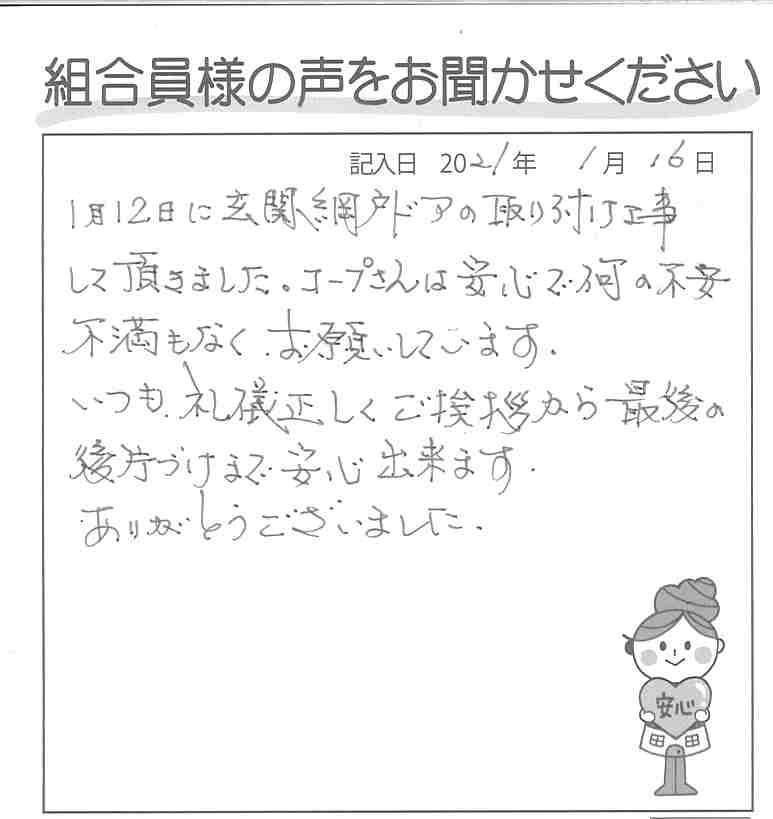 組合員様の声をお聞かせください
記入日 2021年 1月 16日
1月12日に玄関網戸ドアの取り付け工事
して頂きました。コープさんは安心で何の不安
不満もなく、お願いしています。
いつも、礼儀正しくご挨拶から最後の
後片づけまで安心出来ます.
ありがとうございました.
安心